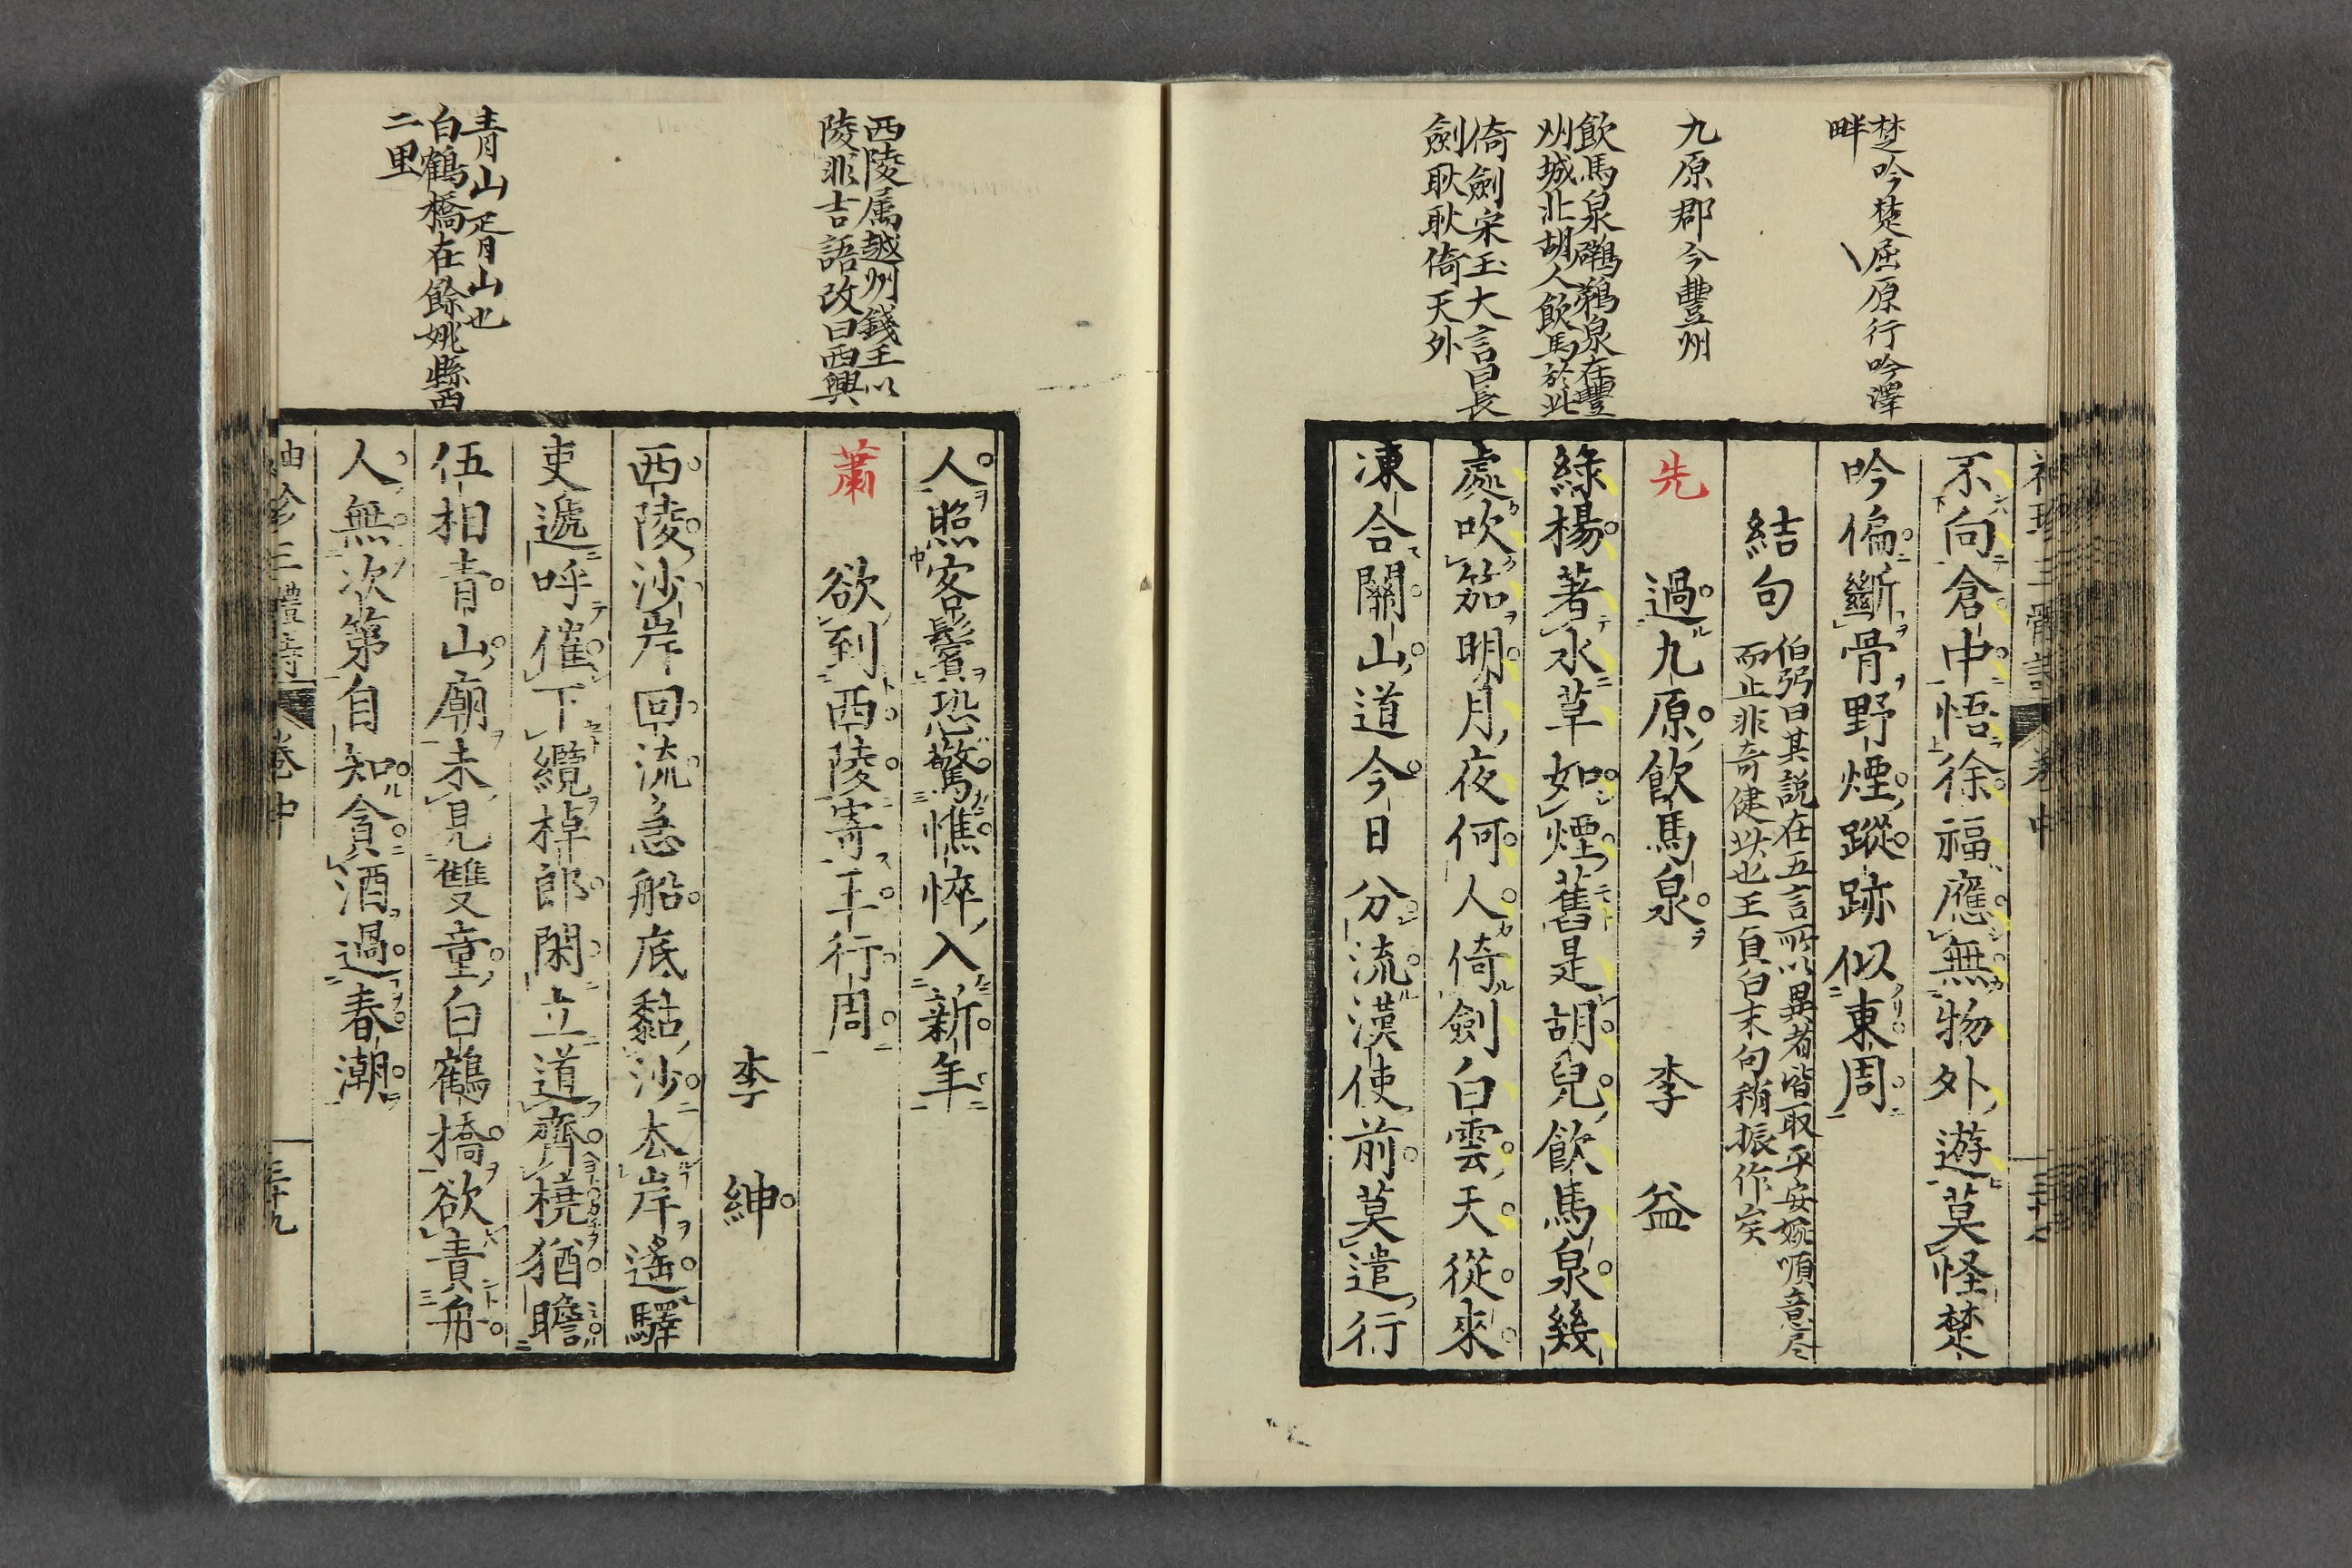 楚吟楚屈原行吟澤
畔
九原郡今豐州
飲馬泉鸊鵜泉在豐
州城北胡人飲馬於此
倚劍宋玉大言曰長
劍耿耿倚天外
不向倉中悟徐福應無物外遊莫怪楚
吟偏斷骨野煙蹤跡似東周
結句
伯弜曰其説在五言所以異者皆取平安婉順意尽
而止非奇健比也王貞白末句稍振作矣
先 過九原飲馬泉 李益
綠楊著水草如煙舊是胡兒飲馬泉幾
處吹笳明月夜何人倚劍白雲天從來
凍合關山道今日分流漢使前莫遣行
西陵属越州錢王以
陵非吉語改曰西興
青山胥山也
白鶴橋在餘姚縣西
二里
人照客鬢恐驚憔悴入新年
蕭 欲到西陵寄王行周
李紳
西陵沙岸回流急船底黏沙去岸遙驛
吏遞呼催下纜棹郎閑立道齊橈猶瞻
伍相青山廟未見雙童白鶴橋欲責舟
人無次第自知貪酒過春潮
袖珍三體詩 卷中
三十九